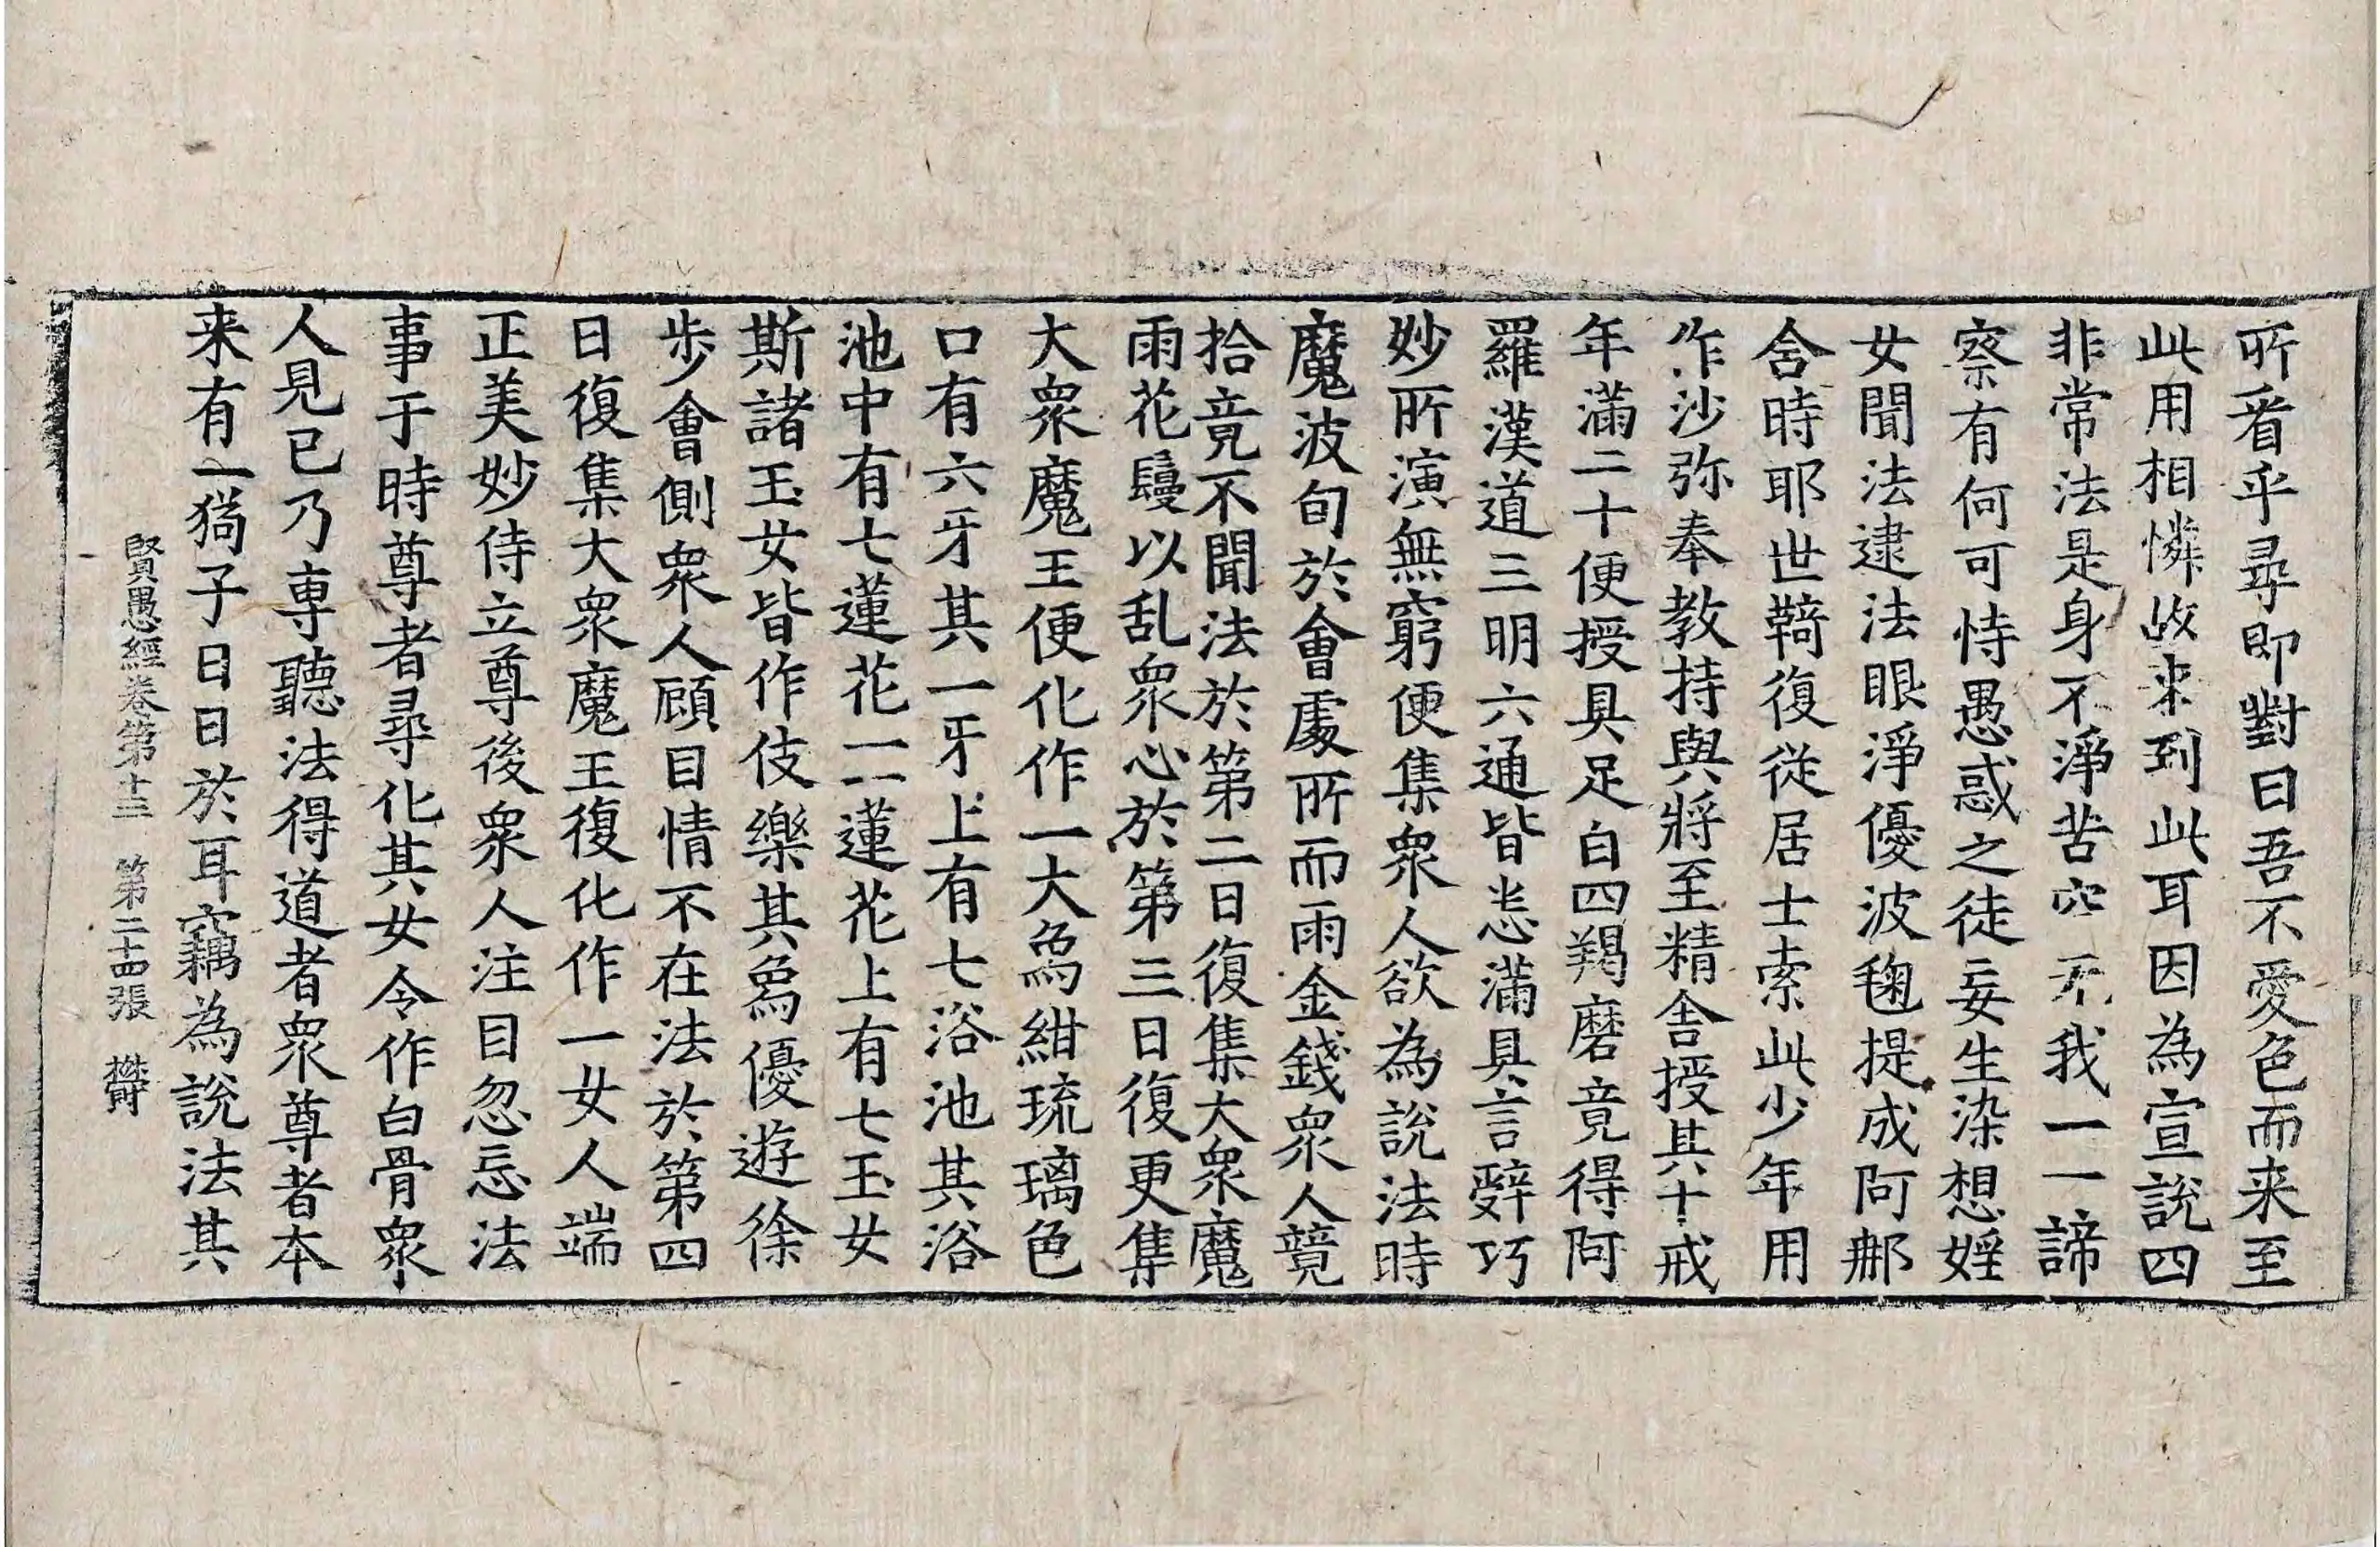 所看乎尋即對曰吾不愛色而来至
此用相憐故来到此耳因為宣說四
非常法是身不淨苦空无我一一諦
察有何可恃愚惑之徒妄生染想婬
女聞法逮法眼淨優波毱提成阿那
含時耶世䩭復從居士索此少年用
作沙弥奉教持與將至精舍授其十戒
年滿二十便授具足白四羯磨竟得阿
羅漢道三明六通皆悉滿具言辝巧
妙所演無窮便集衆人欲為說法時
魔波旬於會處所而雨金錢衆人競
拾竟不聞法於第二日復集大衆魔
雨花鬘以乱衆心於第三日復更集
大衆魔王便化作一大象紺琉璃色
口有六牙其一牙上有七浴池其浴
池中有七蓮花一一蓮花上有七玉女
斯諸玉女皆作伎樂其象優遊徐
步會側衆人顧目情不在法於第四
日復集大衆魔王復化作一女人端
正美妙侍立尊後衆人注目忽忘法
事于時尊者尋化其女令作白骨衆
人見已乃專聽法得道者衆尊者本
来有一猗子日日於耳竊為說法其
賢愚經卷第十三 第二十四張 欝